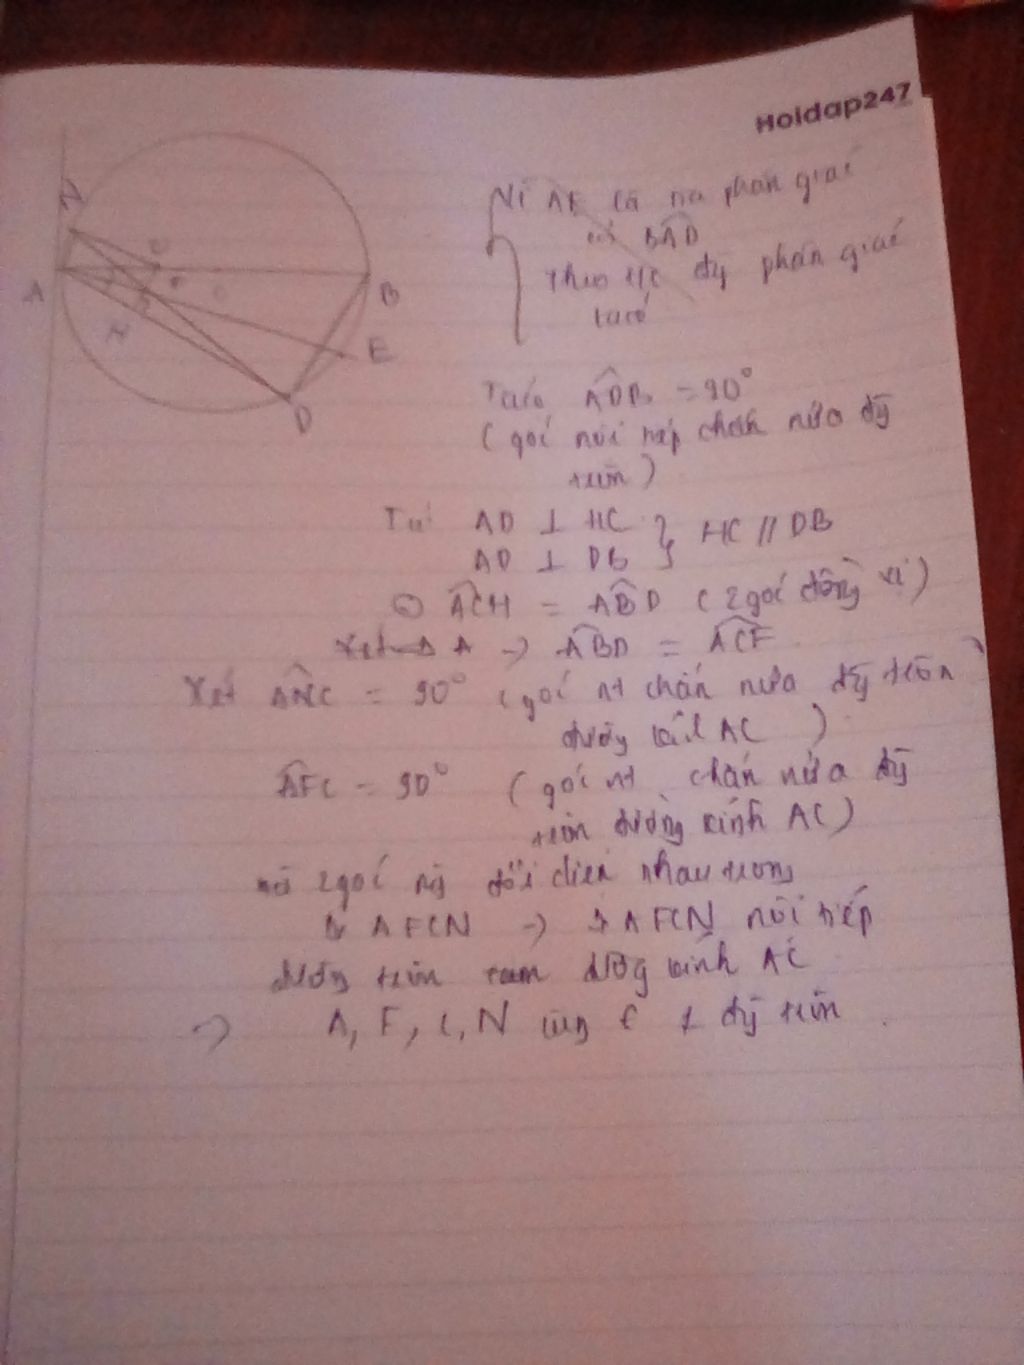 Hoidap247
Vì AE là tia phân giác
BAD
Theo t/c đg phân giác
ta có
N
A
B
E
D
H
Ta có ADB = 90°
(góc nội tiếp chắn nửa đg
tròn)
AD ⊥ HC } HC // DB
AD ⊥ DB
ACH = ABD (2 góc đồng vị)
Xét Δ A → ABD = ACF
Xét ANC = 90° (góc nt chắn nửa đg tròn
đường kính AC)
AFC = 90° (góc nt chắn nửa đg
tròn đường kính AC)
mà 2 góc đối diện nhau trong
AFCN → AFCN nội tiếp
đường tròn đường kính AC
→ A, F, C, N cùng ∈ 1 đg tròn